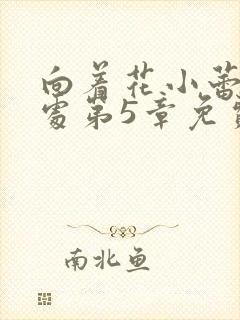 向着花小蕾
处第5章免费
南北鱼